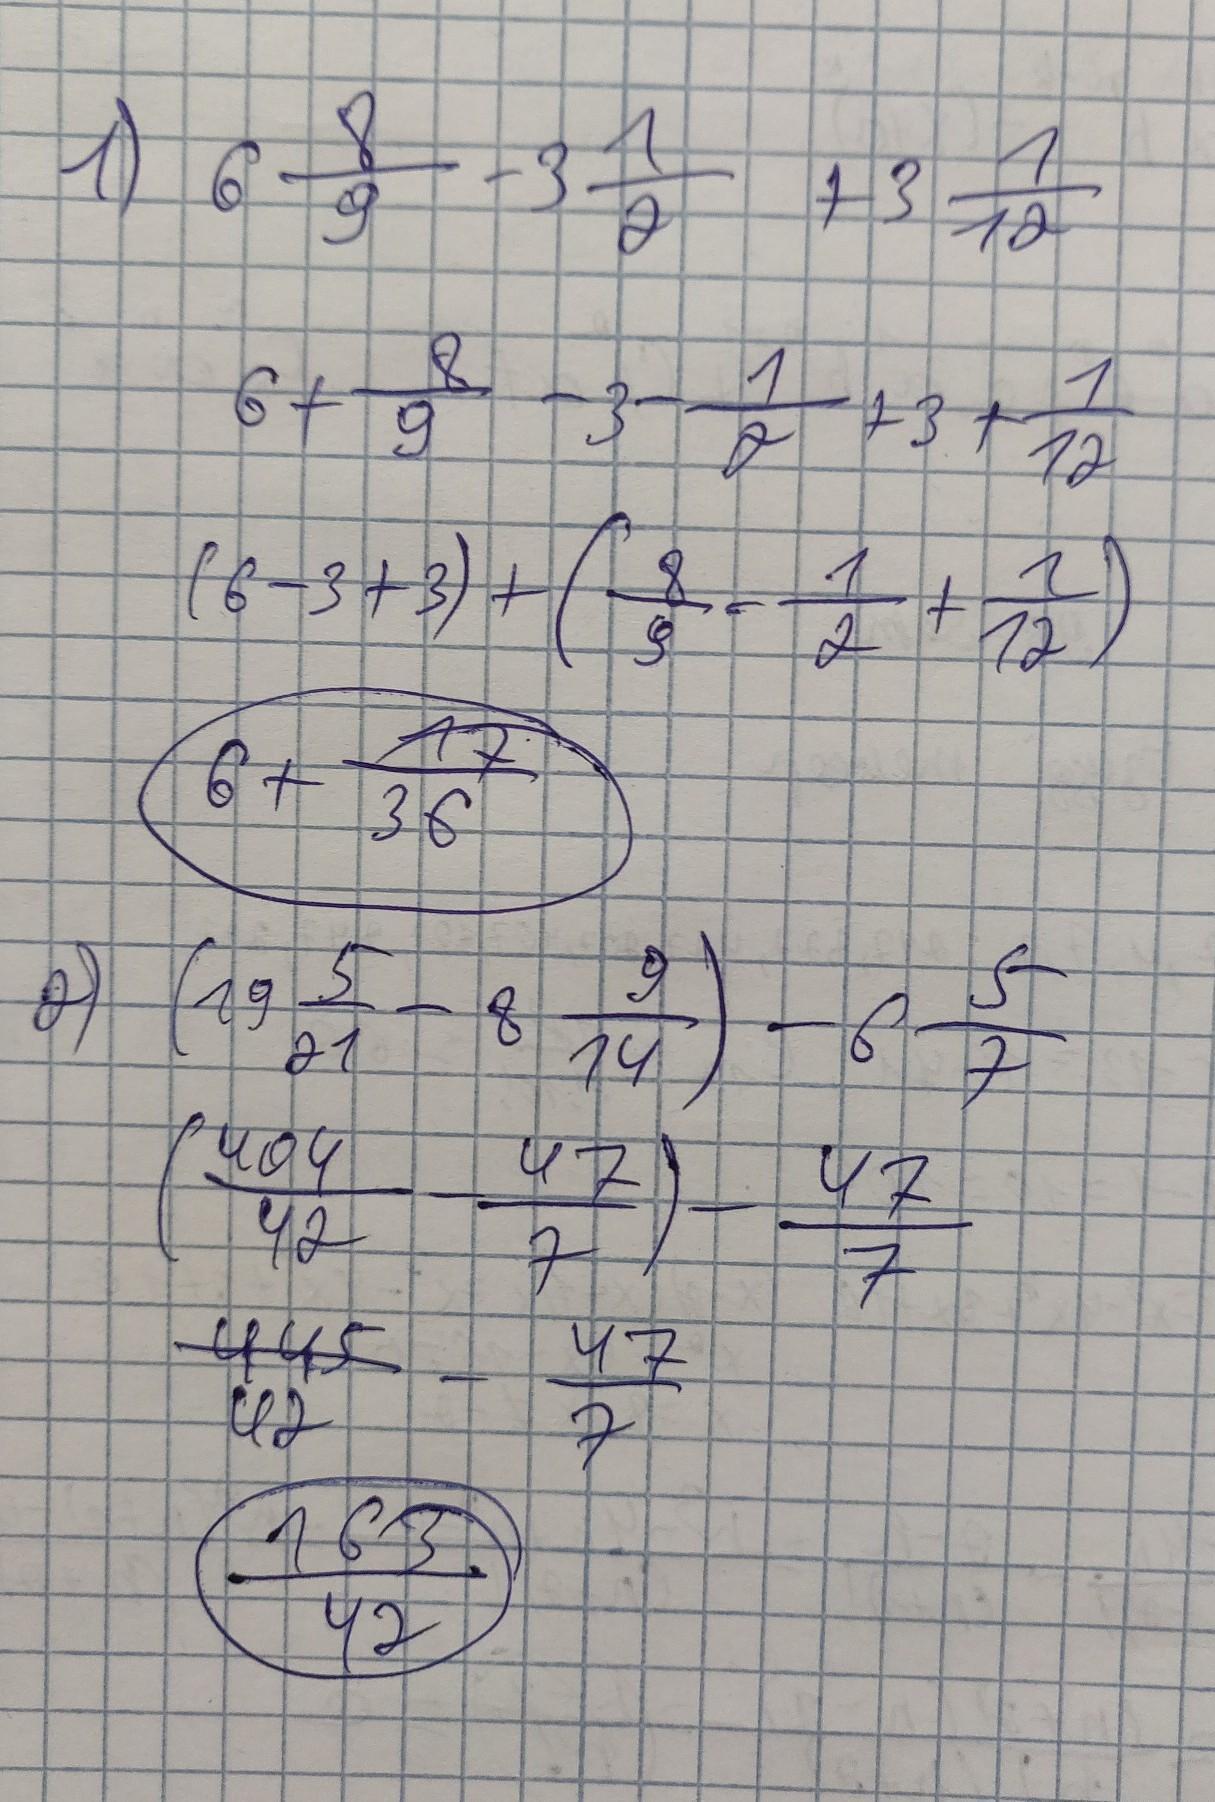 1) 6 8/9 - 3 1/2 + 3 1/12
6 + 8/9 - 3 - 1/2 + 3 + 1/12
(6 - 3 + 3) + (8/9 - 1/2 + 1/12)
6 + 17/36
2) (19 5/21 - 8 9/14) - 6 5/7
(404/42 - 47/7) - 47/7
445/42 - 47/7
163/42